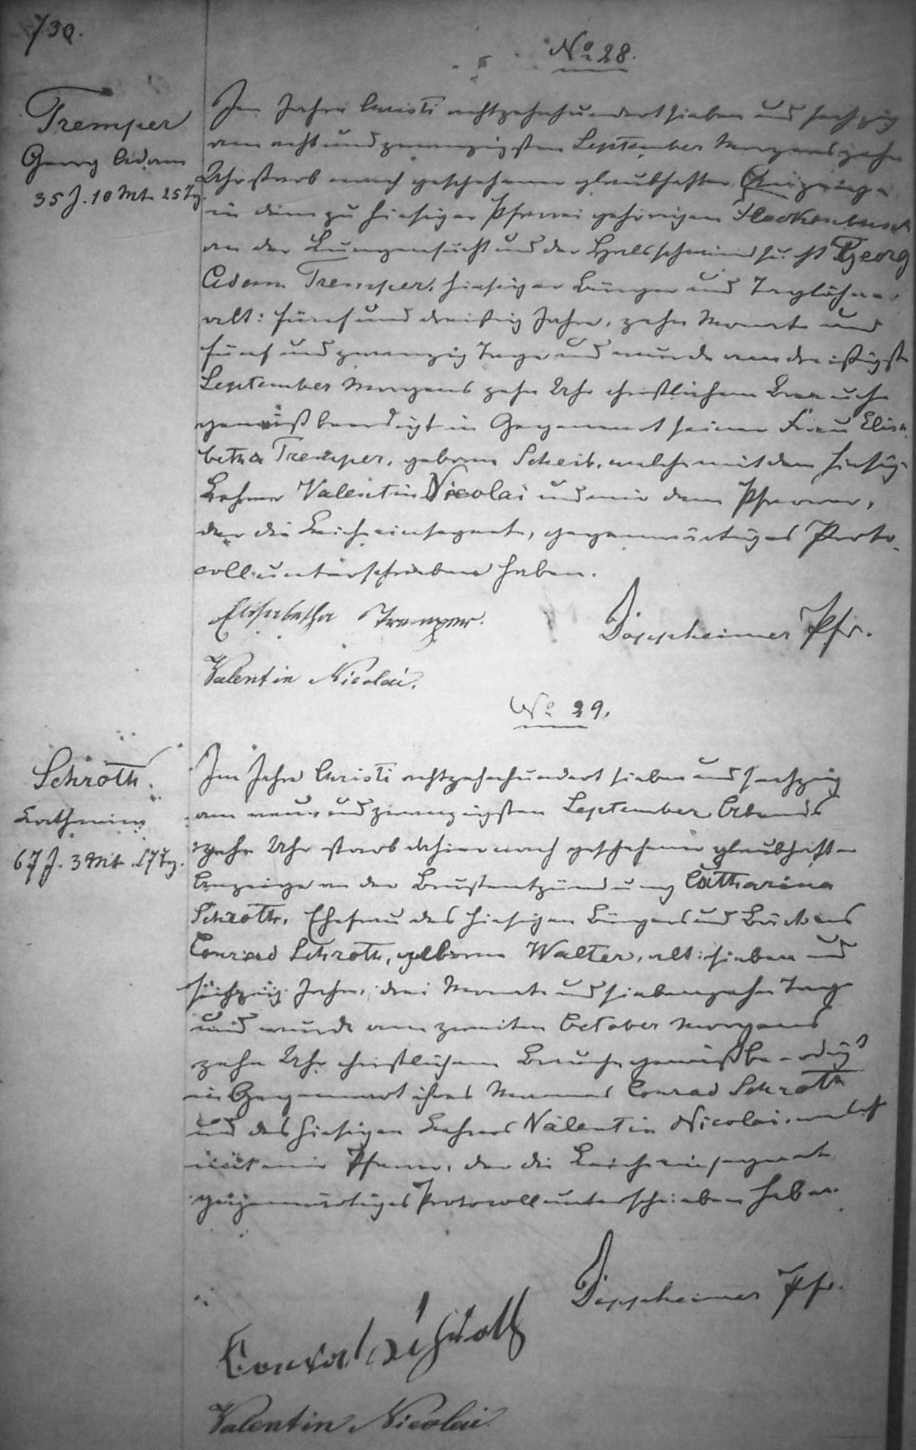 730.
No 28.
Tremper
Georg Adam
35 J. 10 Mt. 25 Tg.
Im Jahre Christi achtzehnhundert sieben und sechzig
am acht und zwanzigsten September Morgens zehn
Uhr starb nach geschehener glaubhafter Anzeige
in dem zu hiesiger Pfarrei gehörigen
an der Lungensucht und der Halsschwindsucht Georg
Adam Tremper, hiesiger Bürger und Taglöhner
alt: fünf und dreißig Jahre, zehn Monate und
fünf und zwanzig Tage und wurde am dreißigsten
September Morgens zehn Uhr christlichem Brauche
gemäß beerdigt in Gegenwart seiner Frau Elisa-
betha Tremper, geborne Scheib, welche mit dem hiesigen
Lehrer Valentin Nicolai und mir dem Pfarrer,
der die Leiche einsegnete, gegenwärtiges Proto-
coll unterschrieben haben.
Elisabetha Tremper.
Doppheimer Pfr.
Valentin Nicolai.
No 29.
Schroth.
Katharina
67 J. 3 Mt. 17 Tg.
Im Jahre Christi achtzehnhundert sieben und sechzig
am neun und zwanzigsten September Abends
zehn Uhr starb dahier nach geschehener glaubhafter
Anzeige an der Brustentzündung Catharina
Schroth, Ehefrau des hiesigen Bürgers und Bäckers
Conrad Schroth, geborne Walter, alt: sieben und
sechzig Jahre, drei Monate und siebenzehn Tage
und wurde am zweiten October Morgens
zehn Uhr christlichem Brauche gemäß beerdigt
in Gegenwart ihres Mannes Conrad Schroth
und des hiesigen Lehrers Valentin Nicolai, welche
mit mir Pfarrer, der die Leiche einsegnete
gegenwärtiges Protocoll unterschrieben haben.
Doppheimer Pfr.
Conrad Schroth
Valentin Nicolai